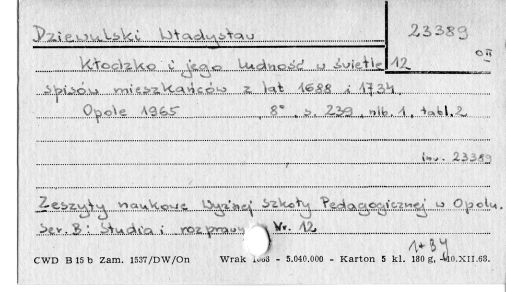 Dziewulski Władysław 23389
OII
Kłodzko i jego ludność w świetle 12
spisów mieszkańców z lat 1688 i 1734
Opole 1965 8° s. 239, nlb. 1, tabl. 2
inw. 23389
Zeszyty naukowe Wyższej Szkoły Pedagogicznej w Opolu.
Ser. B: Studia i rozprawy Nr. 12
1+BY
CWD B 15 b Zam. 1537/DW/On Wrak - 5.040.000 - Karton 5 kl. 180 g, -10.XII.68.